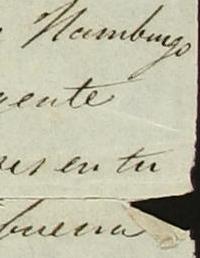 Hamburgo
gente
en tu
buena